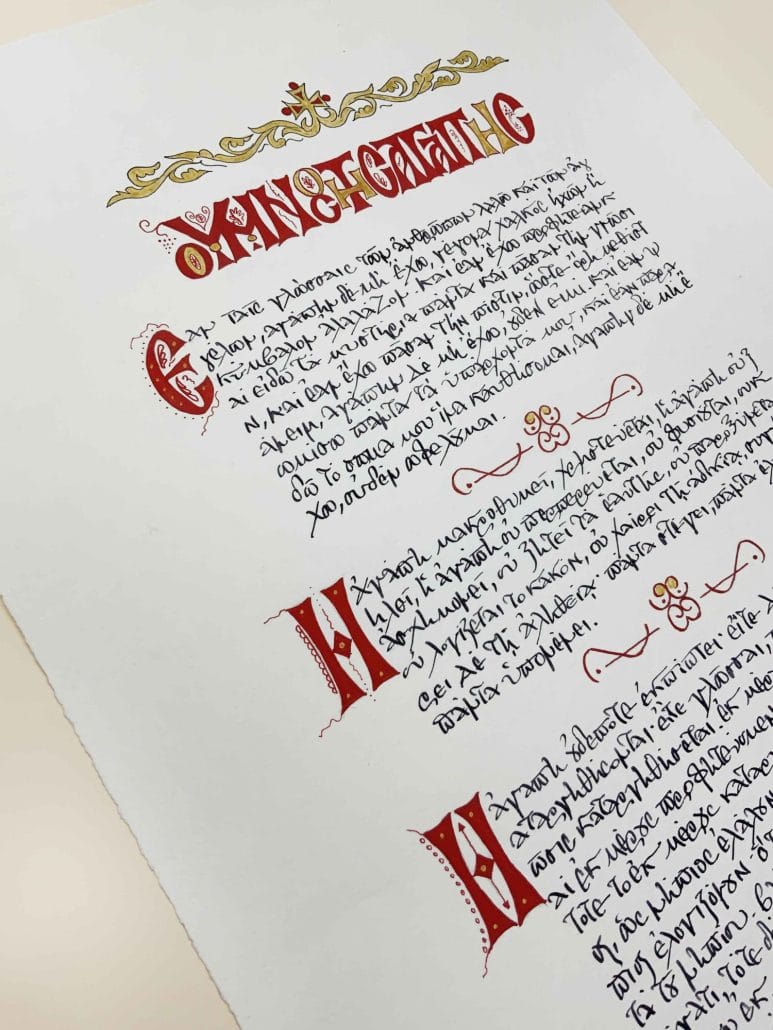 Ο ΥΜΝΟC ΤΗC ΑΓΑΠΗC
Ἐὰν ταῖς γλώσσαις τῶν ἀνθρώπων λαλῶ καὶ τῶν ἀγ
γέλων, ἀγάπην δὲ μὴ ἔχω, γέγονα χαλκὸς ἠχῶν ἢ
κύμβαλον ἀλαλάζον. καὶ ἐὰν ἔχω προφητείαν κ-
αὶ εἰδῶ τὰ μυστήρια πάντα καὶ πᾶσαν τὴν γνῶσι
ν, καὶ ἐὰν ἔχω πᾶσαν τὴν πίστιν, ὥστε ὄρη μεθιστ
άνειν, ἀγάπην δὲ μὴ ἔχω, οὐδέν εἰμι. καὶ ἐὰν ψ
ωμίσω πάντα τὰ ὑπάρχοντά μου, καὶ ἐὰν παρα
δῶ τὸ σῶμα μου ἵνα καυθήσομαι, ἀγάπην δὲ μὴ ἔ
χω, οὐδὲν ὠφελοῦμαι.
Ἡ ἀγάπη μακροθυμεῖ, χρηστεύεται, ἡ ἀγάπη οὐ ζ
ηλοῖ, ἡ ἀγάπη οὐ περπερεύεται, οὐ φυσιοῦται, οὐκ
ἀσχημονεῖ, οὐ ζητεῖ τὰ ἑαυτῆς, οὐ παροξύνετα
οὐ λογίζεται τὸ κακόν, οὐ χαίρει τῇ ἀδικίᾳ, συγ
ρει δὲ τῇ ἀληθείᾳ· πάντα στέγει, πάντα
πάντα ὑπομένει.
Ἡ ἀγάπη οὐδέποτε ἐκπίπτει· εἴτε
αταργηθήσονται· εἴτε γλῶσσαι,
ῶσις καταργηθήσεται. ἐκ μέρ
αὶ ἐκ μέρους προφητεύομεν
τότε τὸ ἐκ μέρους καταργ
η, ὡς νήπιος ἐλάλουν
πιος ἐλογιζόμην ὅτ
τὰ τοῦ νηπίου. βλ
τότε
ἐκ